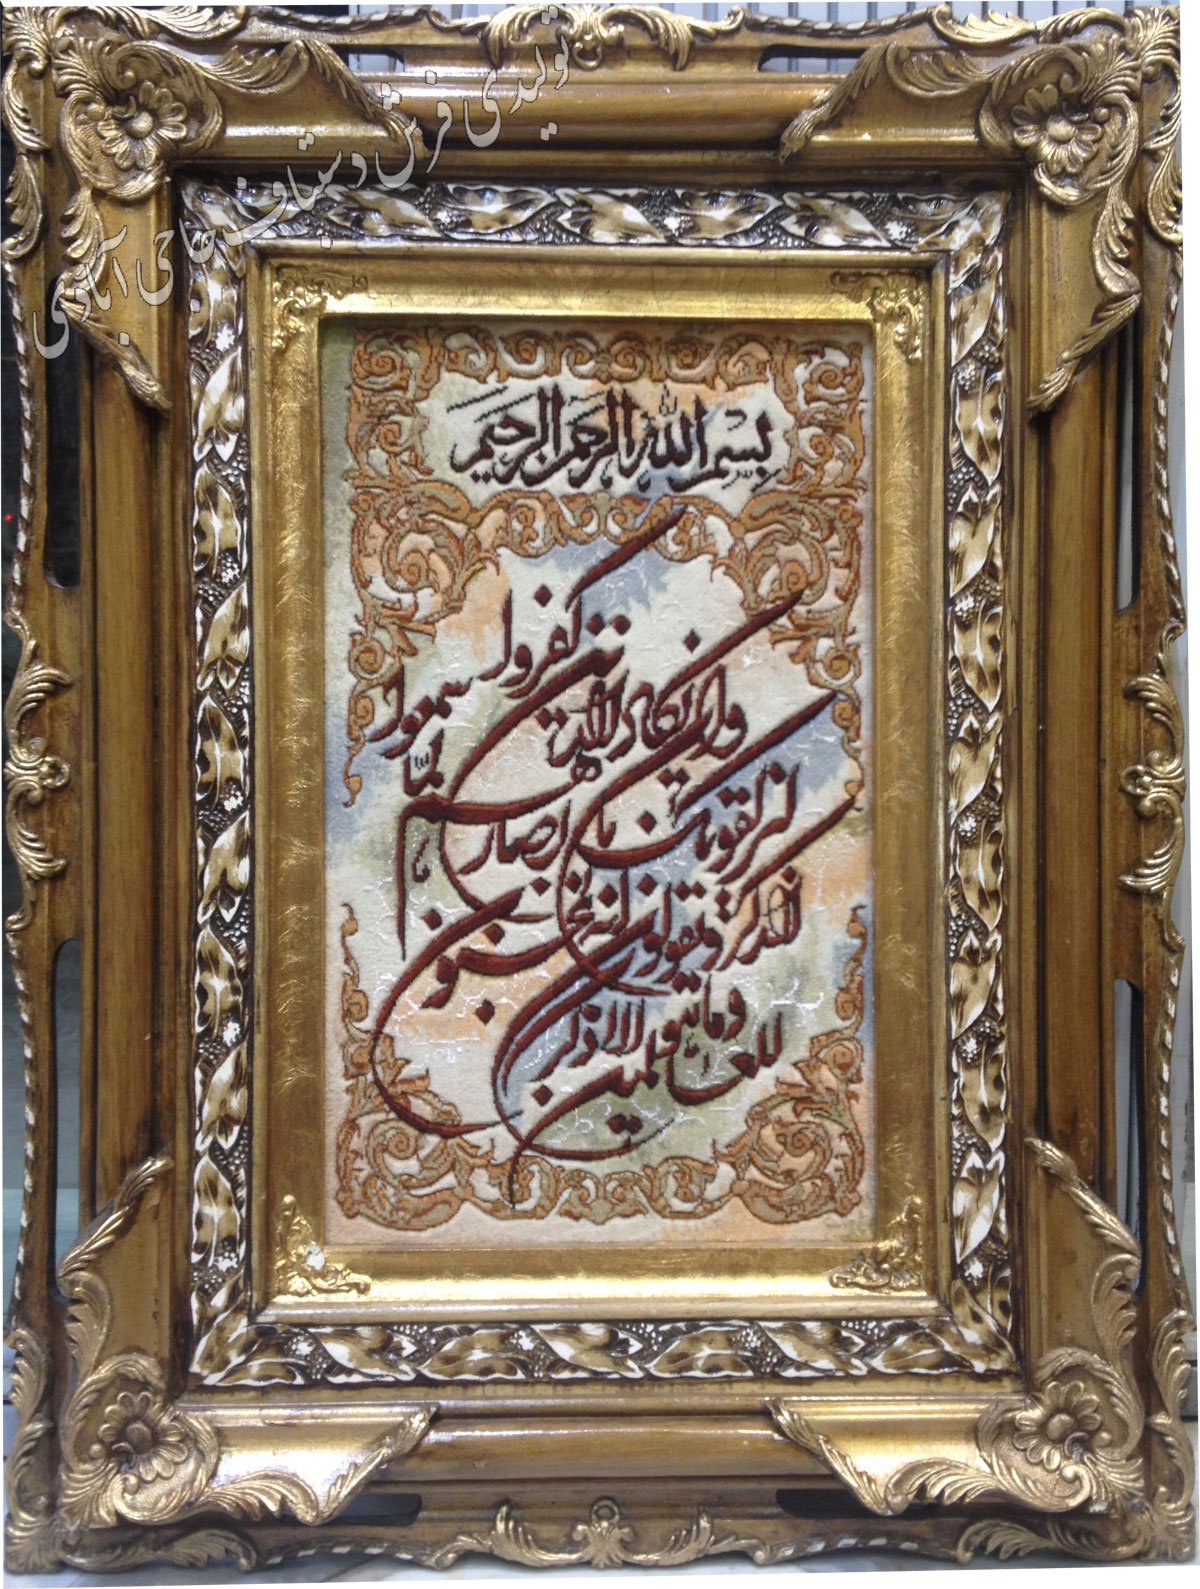 تولیدی فرش دستباف حاجی آبادی
بسم الله الرحمن الرحیم
وان یکاد الذین کفروا
لیزلقونک بابصارهم لما سمعوا
الذکر و یقولون انه لمجنون
و ما هو الا ذکر
للعالمین